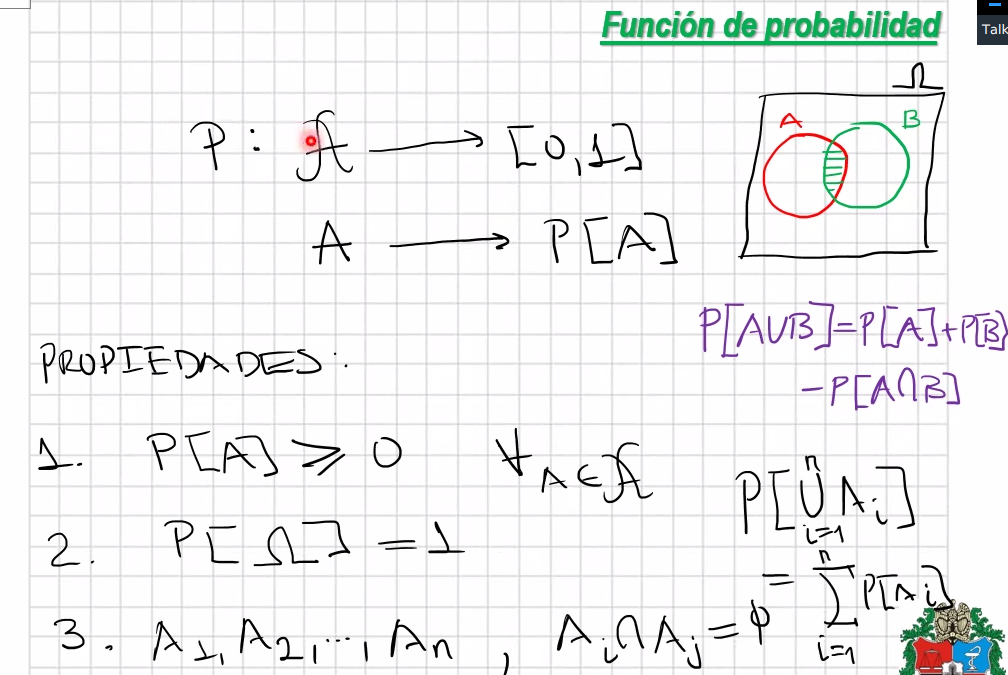 Función de probabilidad
Talk
Ω
P : 𝒜 ⟶ [0,1]
A B
A ⟶ P[A]
P[A∪B]=P[A]+P[B]
-P[A∩B]
PROPIEDADES:
1. P[A] ⩾ 0 ∀ A∈𝒜
2. P[Ω] = 1
3. A1, A2, ..., An , Ai∩Aj = ϕ
P[⋃ i=1 n Ai]
= ∑ i=1 n P[Ai]